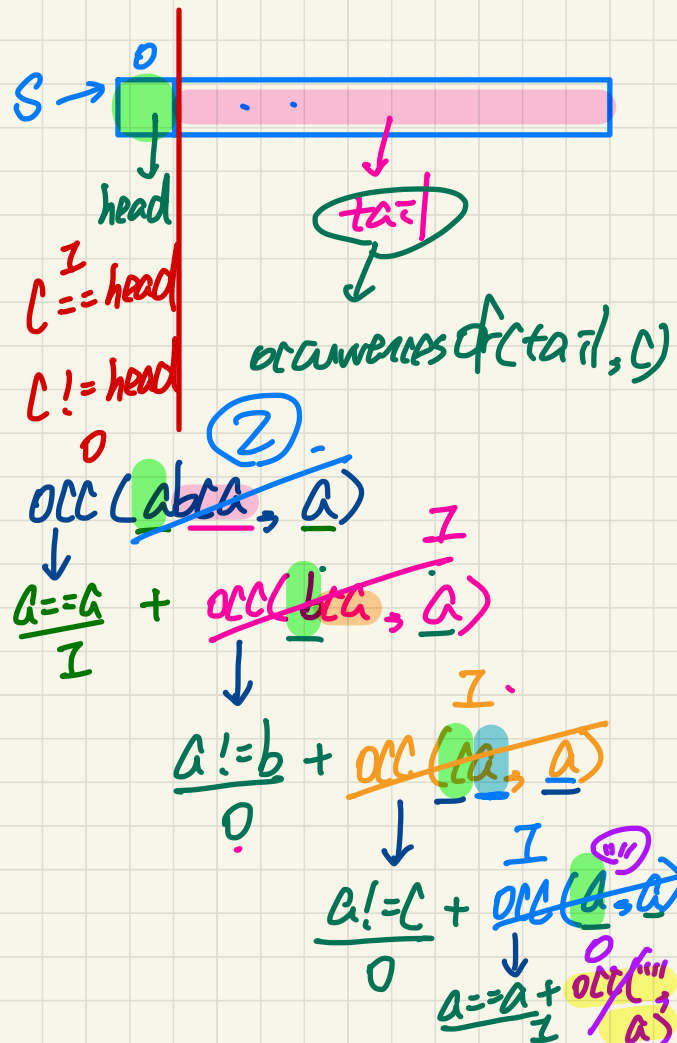 0
S →
head
tail
1
C == head
occurrencesOf(tail, c)
C != head
0
2
occ(abca, a)
1
a==a + occ(bca, a)
1
1
a!=b + occ(ca, a)
0
1
""
a!=c + occ(a, a)
0
0
a==a + occ("",
1
a)